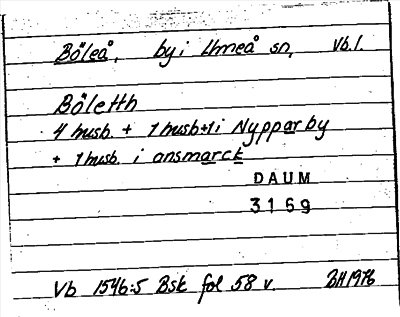 Böleå, by i Umeå sn, Vb.l.
Böletth
4 husb + 1 husb+1 i Nypparby
+ 1 husb. i ansmarck
DAUM
3169
Vb 1546:5 Bsk fol 58 v. BH 1976